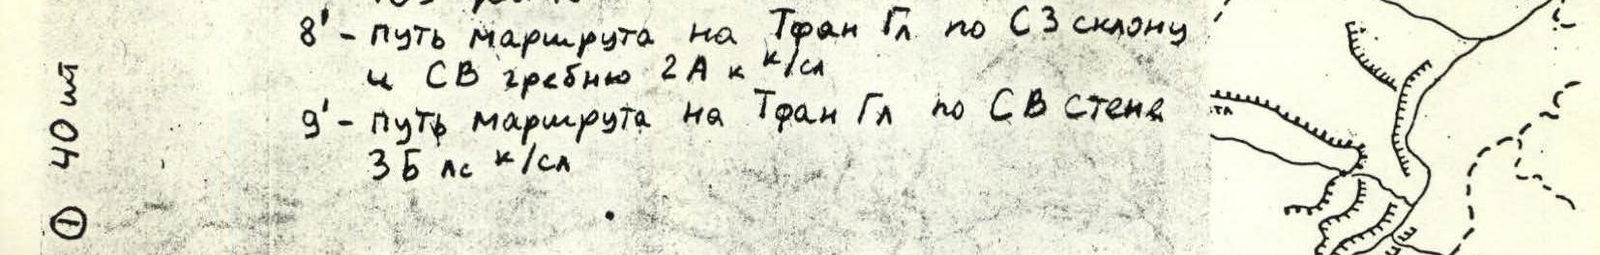 8' - путь маршрута на Тфан Гл по СЗ склону
и СВ гребню 2А к к/сл
9' - путь маршрута на Тфан Гл по СВ стене
3Б лс к/сл
① 40 шт